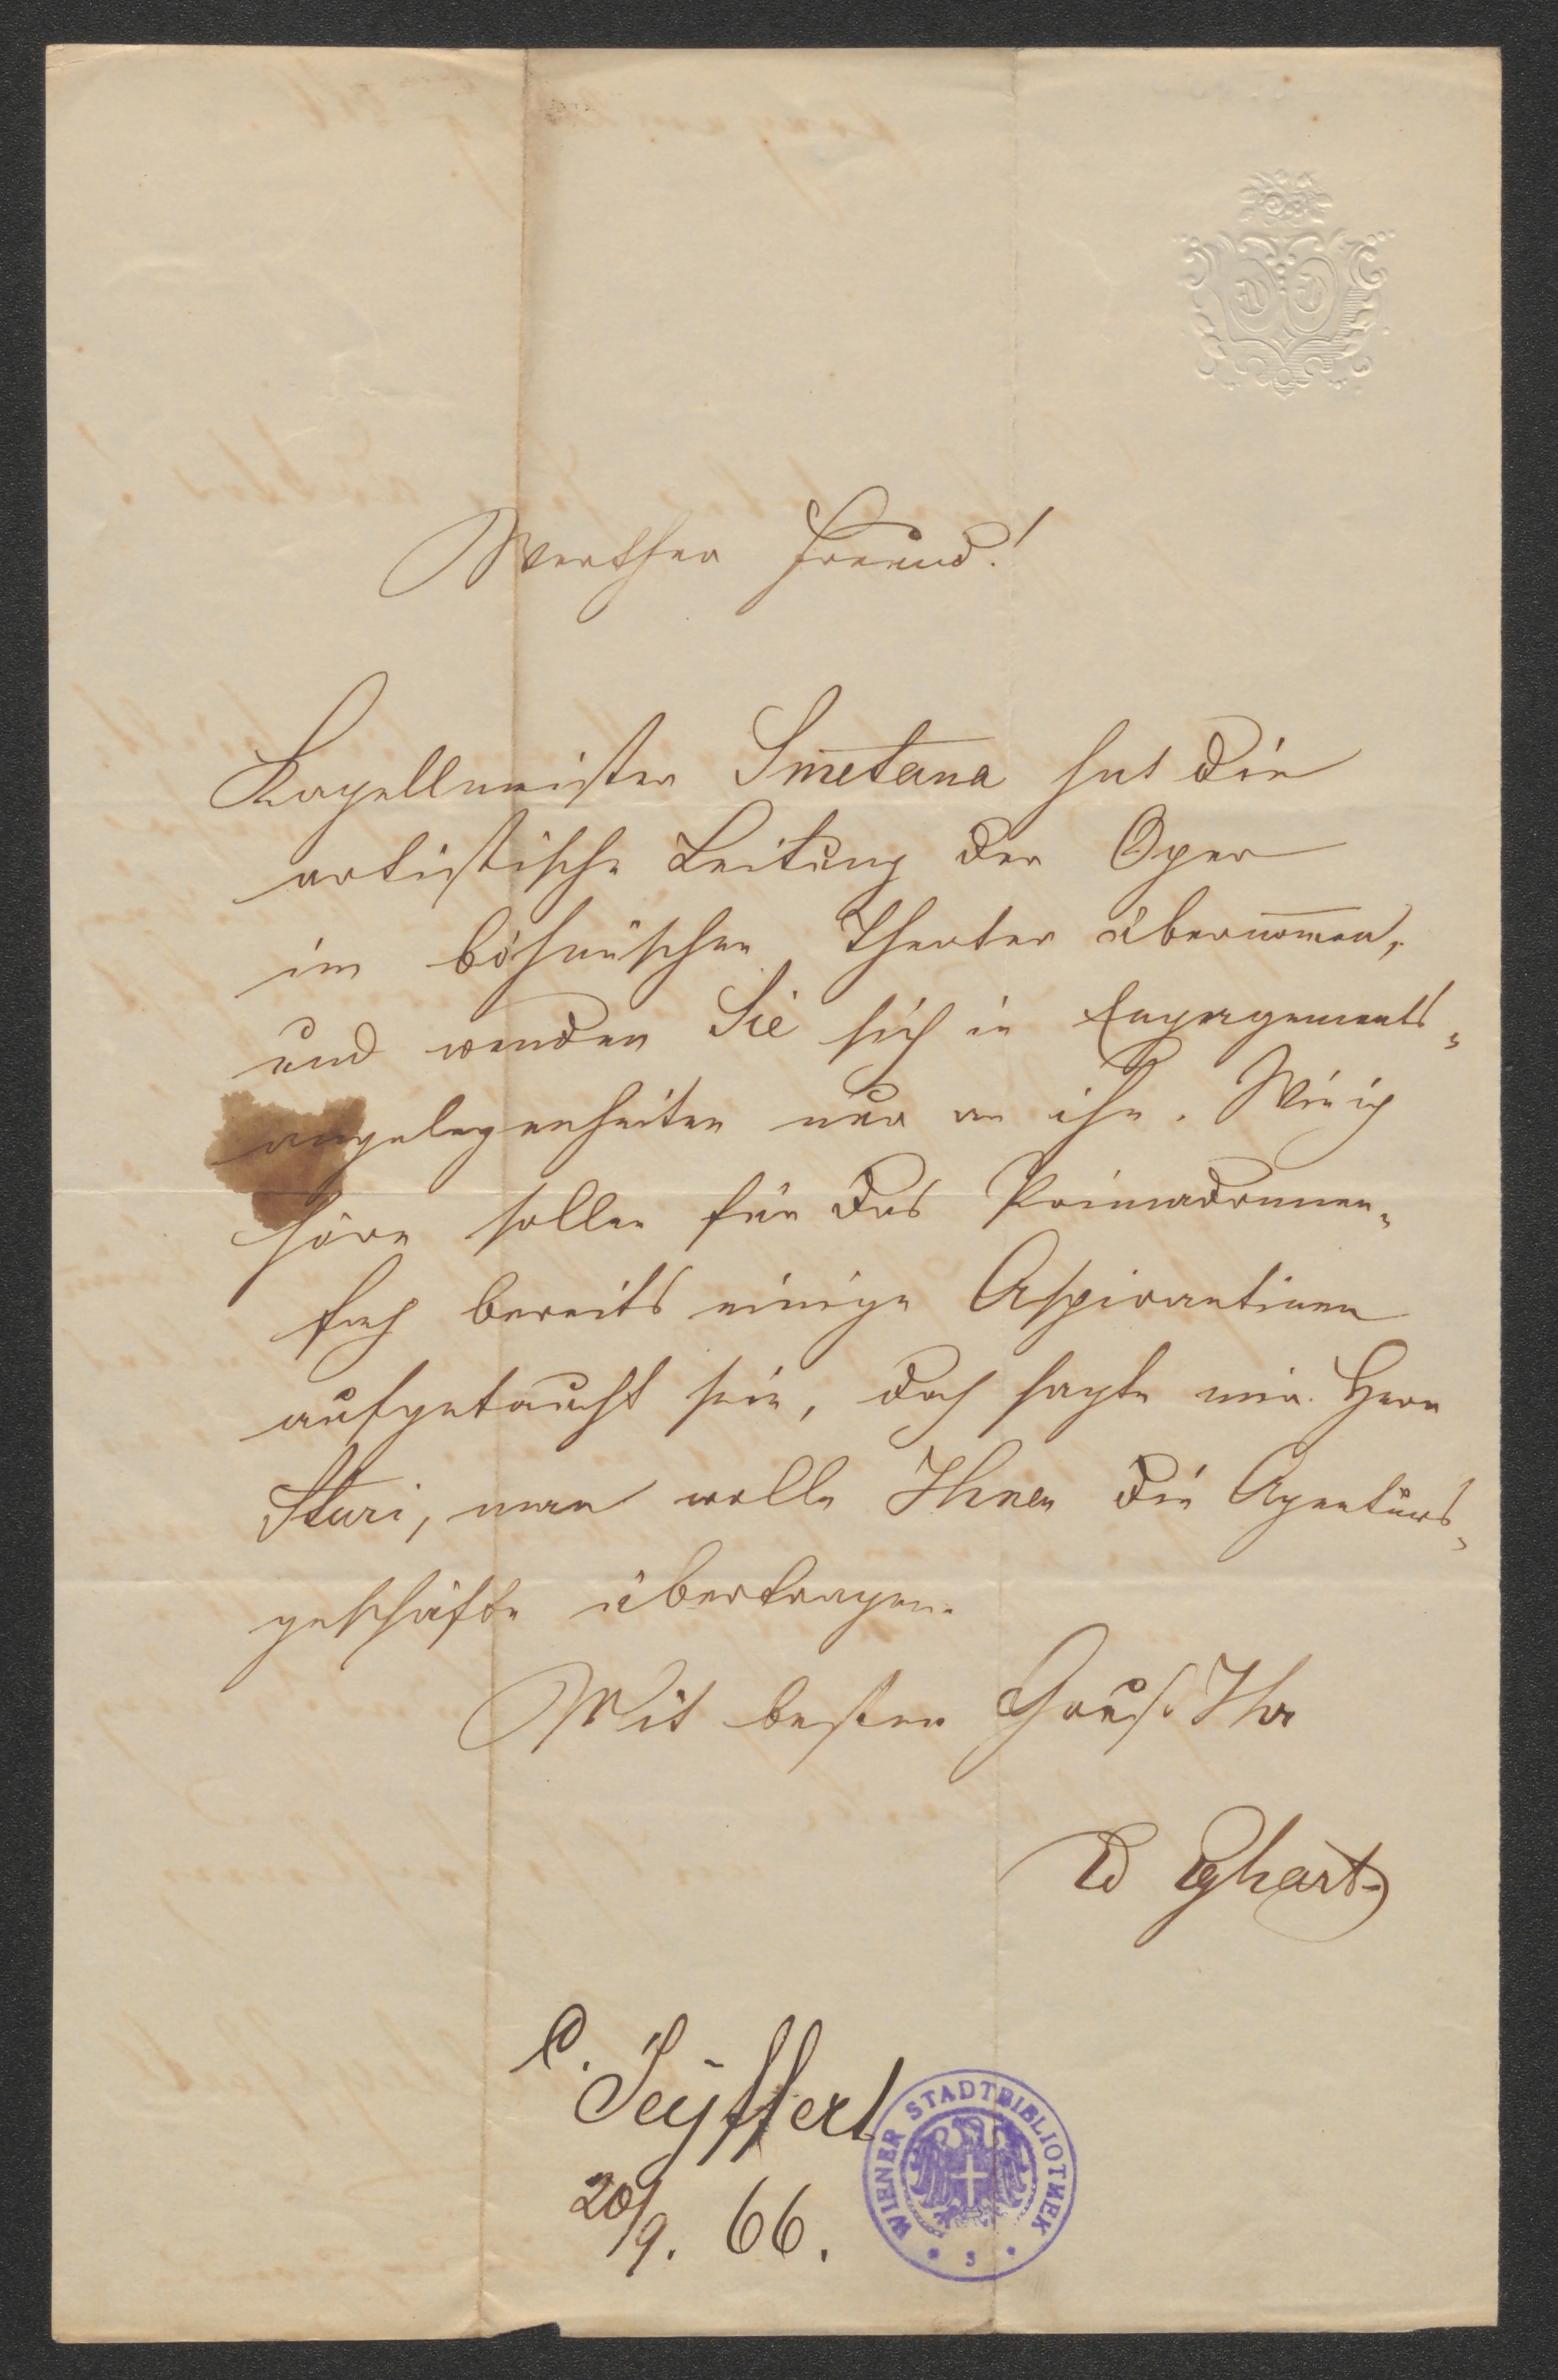 Werther Freund!
Kapellmeister Smetana hat die
artistische Leitung der Oper
im böhmischen Theater übernom̅en,
und wenden Sie sich in Engagements„
angelegenheiten nur an ihn. Wie ich
höre sollen für das Primadonnen„
fach bereits einige Aspirantinen
aufgetaucht sein, doch sagte mir Herr
Sturi, man wolle Ihnen die Agenturs„
geschäfte übertragen.
Mit besten Gruß Ihr
Ed Eghart
C. Seyffert
20/9. 66.
WIENER STADTBIBLIOTHEK